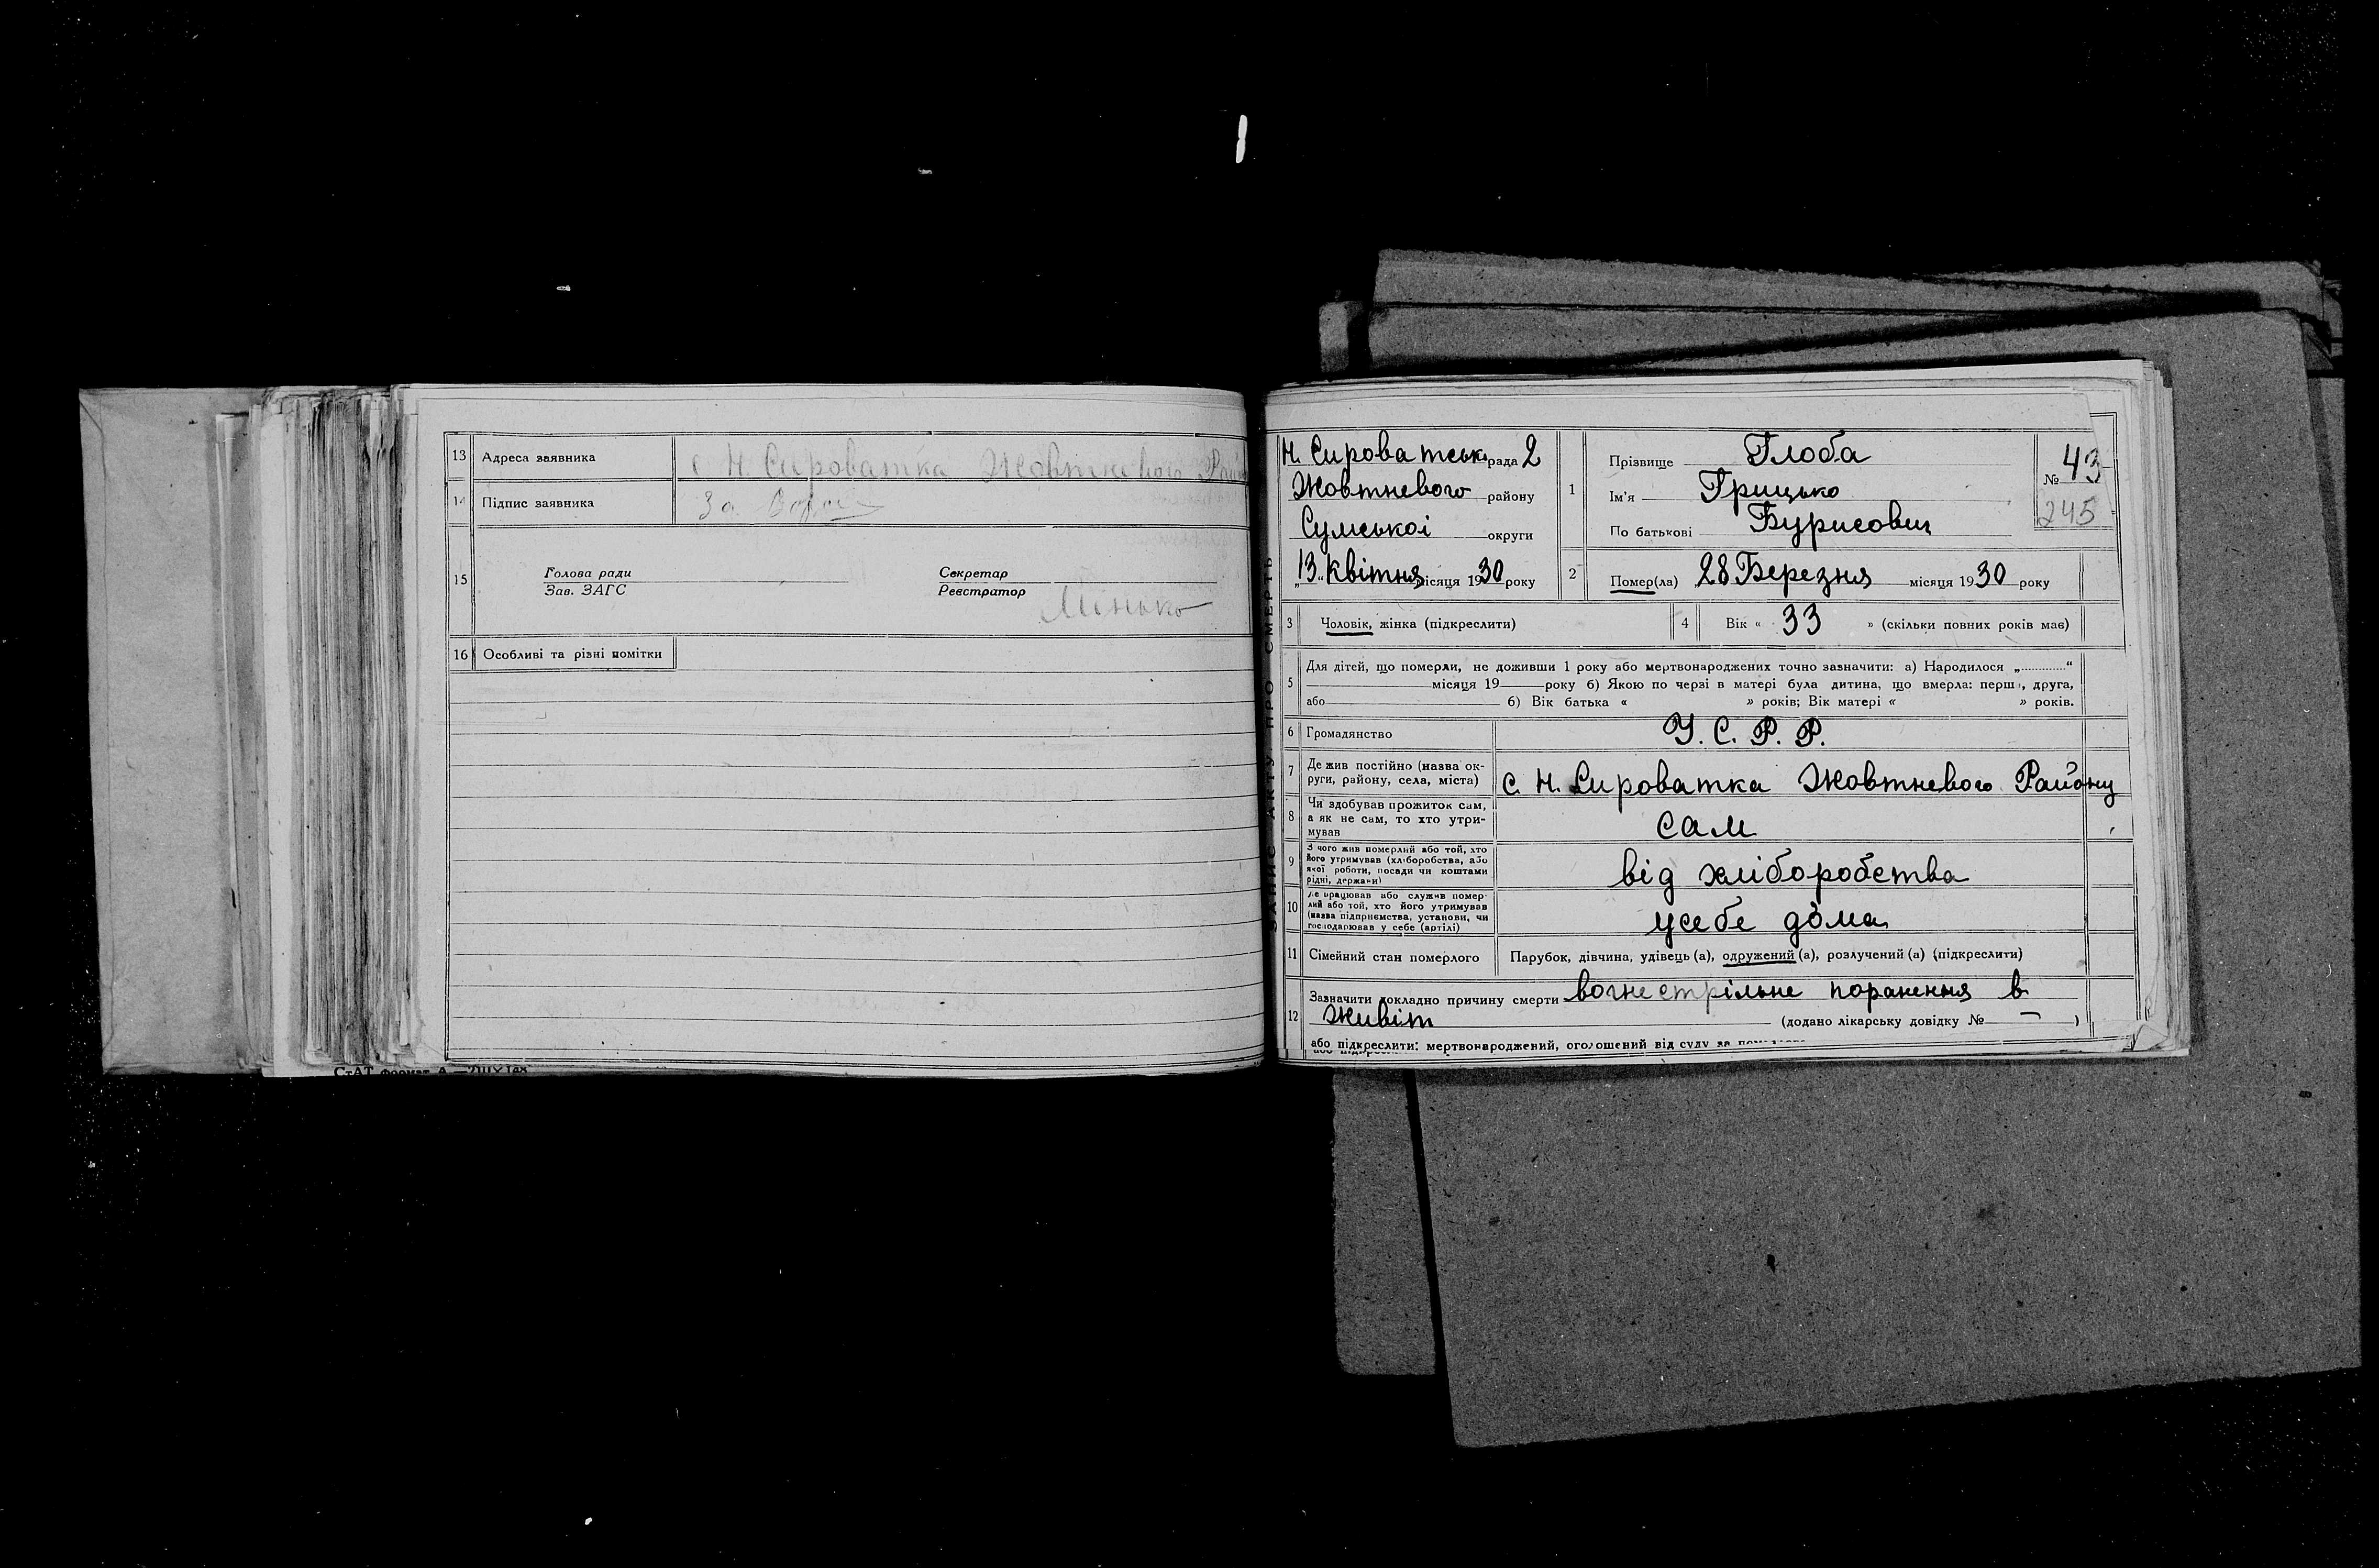 13 Адреса заявника с Н. Сироватка Жовтневого Рай
14 Підпис заявника За
15 Голова ради Секретар
Зав. ЗАГС Реєстратор
Мінько
16 Особливі та різні помітки
СтАТ формат А
ЗАПИС АКТУ ПРО СМЕРТЬ
Н. Сироватськ рада 2
Жовтневого району
Сумської округи
„13“ Квітня місяця 1930 року
1 Прізвище Глоба
Ім'я Грицько
По батькові Бурисович
№ 43
245
2 Помер(ла) 28 Березня місяця 1930 року
3 Чоловік, жінка (підкреслити) 4 Вік « 33 » (скільки повних років має)
5 Для дітей, що померли, не доживши 1 року або мертвонароджених точно зазначити: а) Народилося „............“
місяця 19 року б) Якою по черзі в матері була дитина, що вмерла: перша, друга,
або б) Вік батька « » років; Вік матері « » років.
6 Громадянство У. С. Р. Р.
7 Де жив постійно (назва ок-
руги, району, села, міста) с. Н. Сироватка Жовтневого Району
8 Чи здобував прожиток сам,
а як не сам, то хто утри-
мував сам
9 З чого жив померлий або той, хто
його утримував (хліборобства, або
якої роботи, посади чи коштами
рідні, держави) від хліборобства
10 Де працював або служив помер-
лий або той, хто його утримував
(назва підприємства, установи, чи
господарював у себе (артілі) усебе дома
11 Сімейний стан померлого Парубок, дівчина, удівець (а), одружений (а), розлучений (а) (підкреслити)
12 Зазначити докладно причину смерти вогнестрільне поранення в
Живіт (додано лікарську довідку № — )
або підкреслити: мертвонароджений, оголошений від суду за